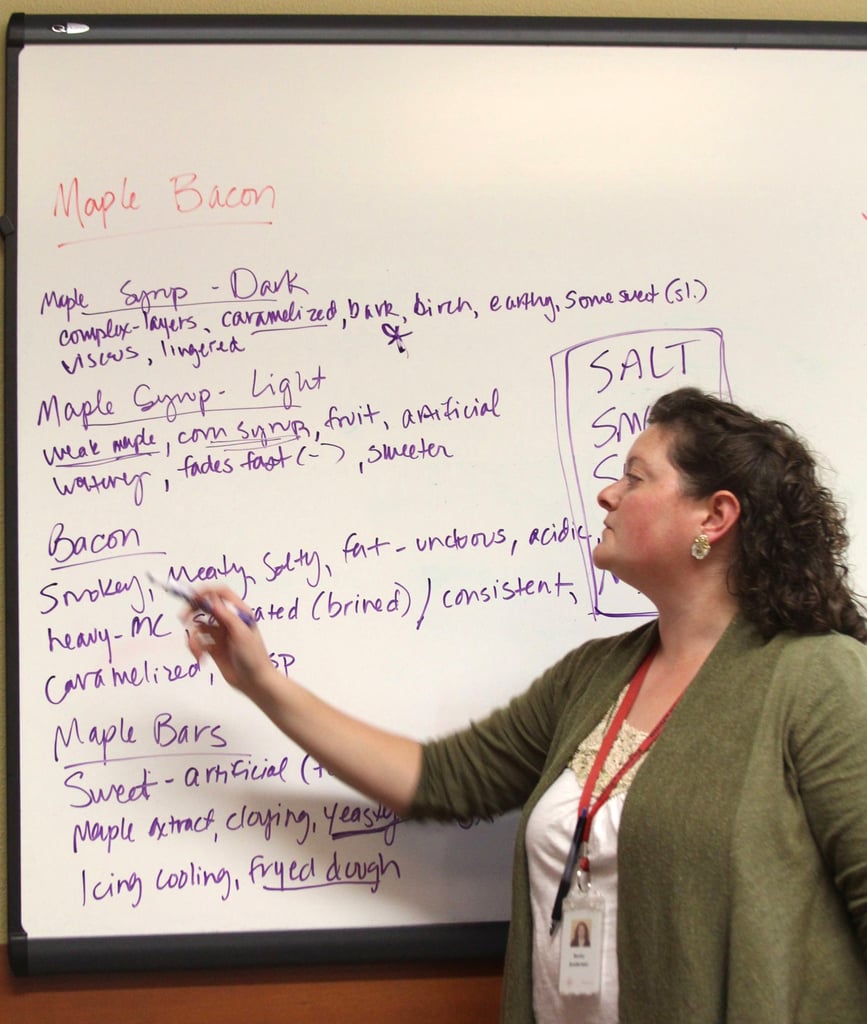 Maple Bacon
Maple Syrup - Dark
complex-layers, caramelized, bark, birch, earthy, some sweet (sl.)
viscous, lingered
Maple Syrup - Light
weak maple, corn syrup, fruit, artificial
watery, fades fast (-), sweeter
SALT
Bacon
Smokey, Meaty, Salty, fat - unctuous, acidic,
heavy - MC, (brined) / consistent,
Caramelized,
Maple Bars
Sweet - artificial
Maple extract, cloying, yeasty
Icing cooling, fryed dough